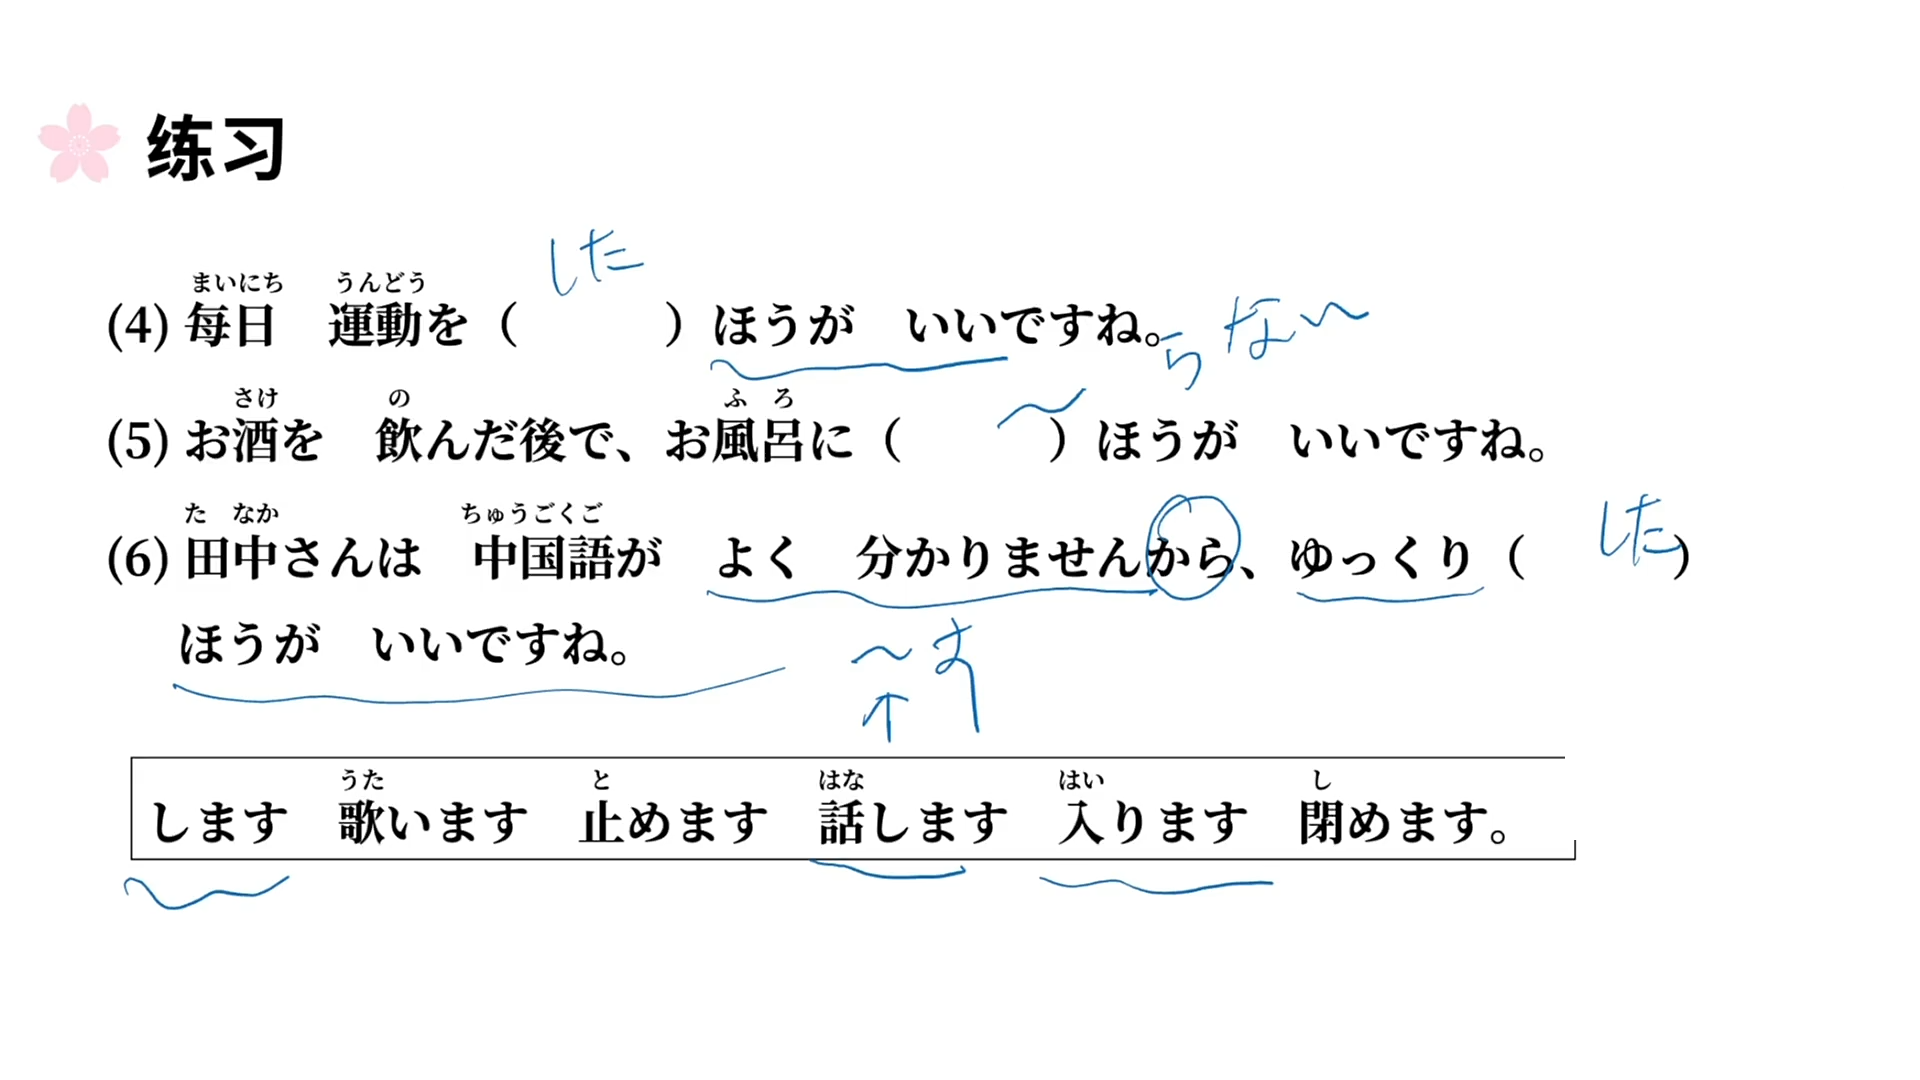 练习
した
まいにち うんどう
(4) 毎日 運動を（ ）ほうが いいですね。
らない
さけ の ふ ろ
(5) お酒を 飲んだ後で、お風呂に（ ）ほうが いいですね。
た なか ちゅうごくご
(6) 田中さんは 中国語が よく 分かりませんから、ゆっくり（ した ）
ほうが いいですね。
～す
うた と はな はい し
します 歌います 止めます 話します 入ります 閉めます。